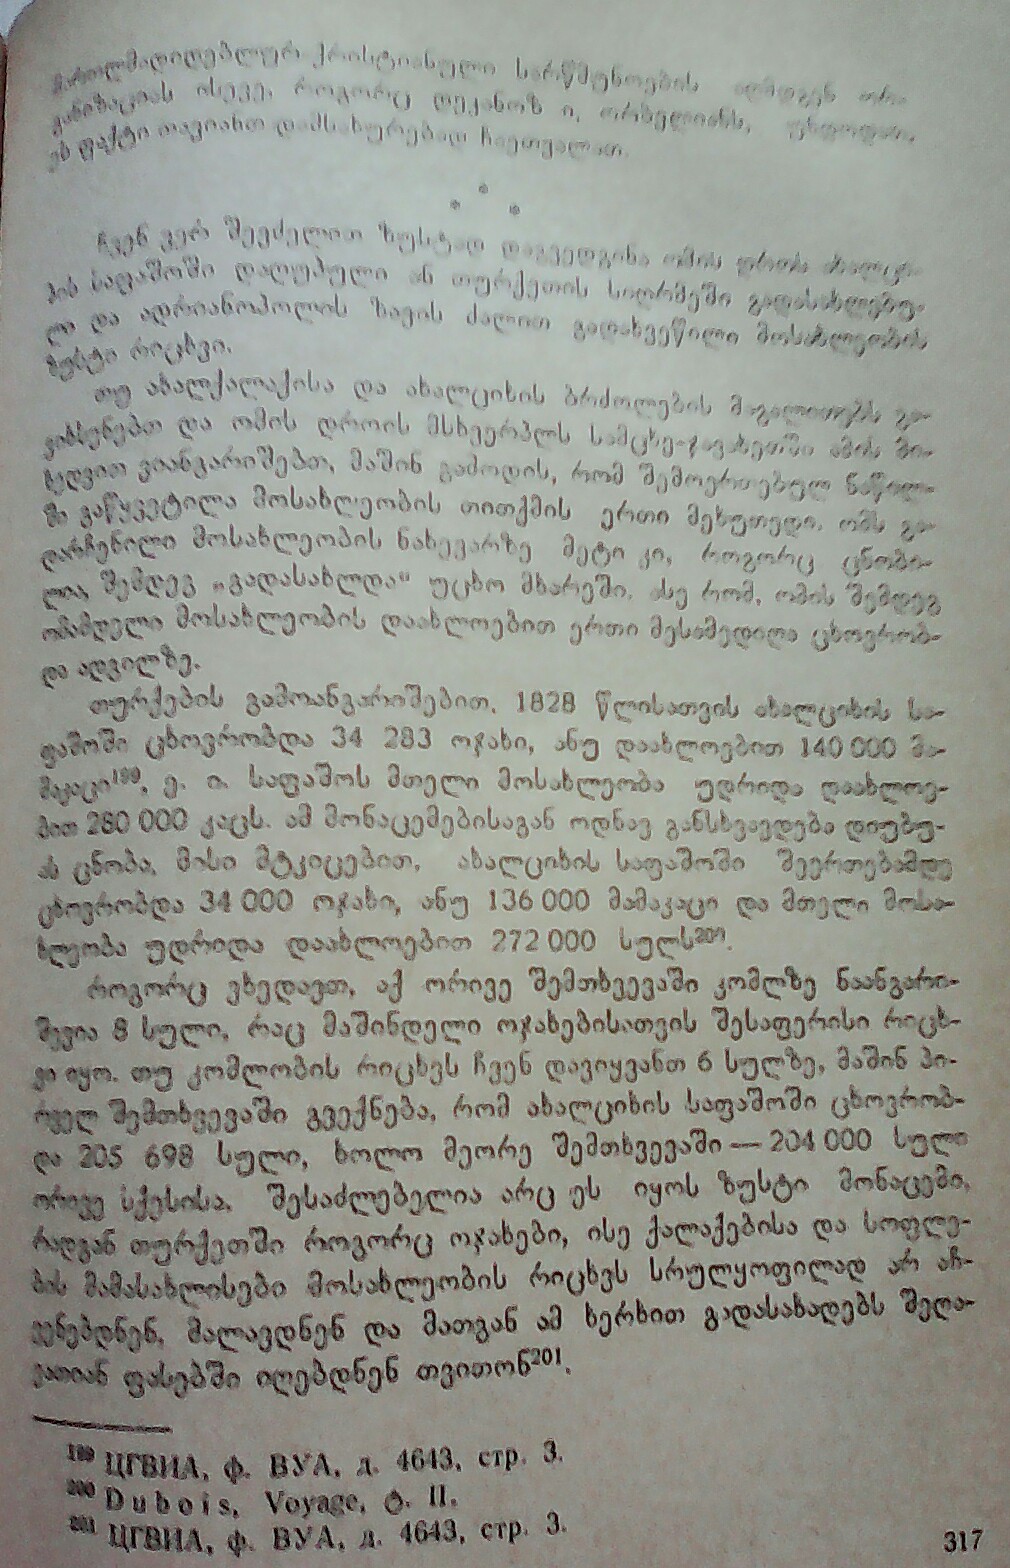 მართლმადიდებლურ ქრისტიანული სარწმუნოების აღმდგენ ორ-
განიზაციას ისევე, როგორც დეკანოზ ი. ორბელიანს, უნდოდათ,
ეს ფაქტი თავიანთ დამსახურებად ჩაეთვალათ.
* * *
ჩვენ ვერ შევძელით ზუსტად დაგვედგინა ომის დროს ახალცი-
ხის საფაშოში დაღუპული ან თურქეთის სიღრმეში გადასახლებუ-
ლი და ადრიანოპოლის ზავის ძალით გადახვეწილი მოსახლეობის
ზუსტი რიცხვი.
თუ ახალქალაქისა და ახალციხის ბრძოლების მაგალითებს გა-
ვიხსენებთ და ომის დროის მსხვერპლს სამცხე-ჯავახეთში ამის მი-
ხედვით ვიანგარიშებთ, მაშინ გამოდის, რომ შემოერთებულ ნაწილ-
ში გაწყვეტილა მოსახლეობის თითქმის ერთი მეხუთედი. ომს გა-
დარჩენილი მოსახლეობის ნახევარზე მეტი კი, როგორც ცნობი-
ლია, შემდეგ „გადასახლდა“ უცხო მხარეში. ისე რომ, ომის შემდეგ
ომამდელი მოსახლეობის დაახლოებით ერთი მესამედიღა ცხოვრობ-
და ადგილზე.
თურქების გამოანგარიშებით, 1828 წლისათვის ახალციხის სა-
ფაშოში ცხოვრობდა 34 283 ოჯახი, ანუ დაახლოებით 140 000 მა-
მაკაცი¹⁹⁹, ე. ი. საფაშოს მთელი მოსახლეობა უდრიდა დაახლოე-
ბით 280 000 კაცს. ამ მონაცემებისაგან ოდნავ განსხვავდება დიუბუ-
ას ცნობა, მისი მტკიცებით, ახალციხის საფაშოში შეერთებამდე
ცხოვრობდა 34 000 ოჯახი, ანუ 136 000 მამაკაცი და მთელი მოსა-
ხლეობა უდრიდა დაახლოებით 272 000 სულს²⁰⁰.
როგორც ვხედავთ, აქ ორივე შემთხვევაში კომლზე ნაანგარი-
შევია 8 სული, რაც მაშინდელი ოჯახებისათვის შესაფერისი რიცხ-
ვი იყო. თუ კომლობის რიცხვს ჩვენ დავიყვანთ 6 სულზე, მაშინ პი-
რველ შემთხვევაში გვექნება, რომ ახალციხის საფაშოში ცხოვრობ-
და 205 698 სული, ხოლო მეორე შემთხვევაში — 204 000 სული
ორივე სქესისა. შესაძლებელია არც ეს იყოს ზუსტი მონაცემი,
რადგან თურქეთში როგორც ოჯახები, ისე ქალაქებისა და სოფლე-
ბის მამასახლისები მოსახლეობის რიცხვს სრულყოფილად არ აჩ-
ვენებდნენ, მალავდნენ და მათგან ამ ხერხით გადასახადებს შეღა-
ვათიან ფასებში იღებდნენ თვითონ²⁰¹.
¹⁹⁹ ЦГВИА, ф. ВУА, д. 4643, стр. 3.
²⁰⁰ Dubois, Voyage, ტ. II.
²⁰¹ ЦГВИА, ф. ВУА, д. 4643, стр. 3.
317